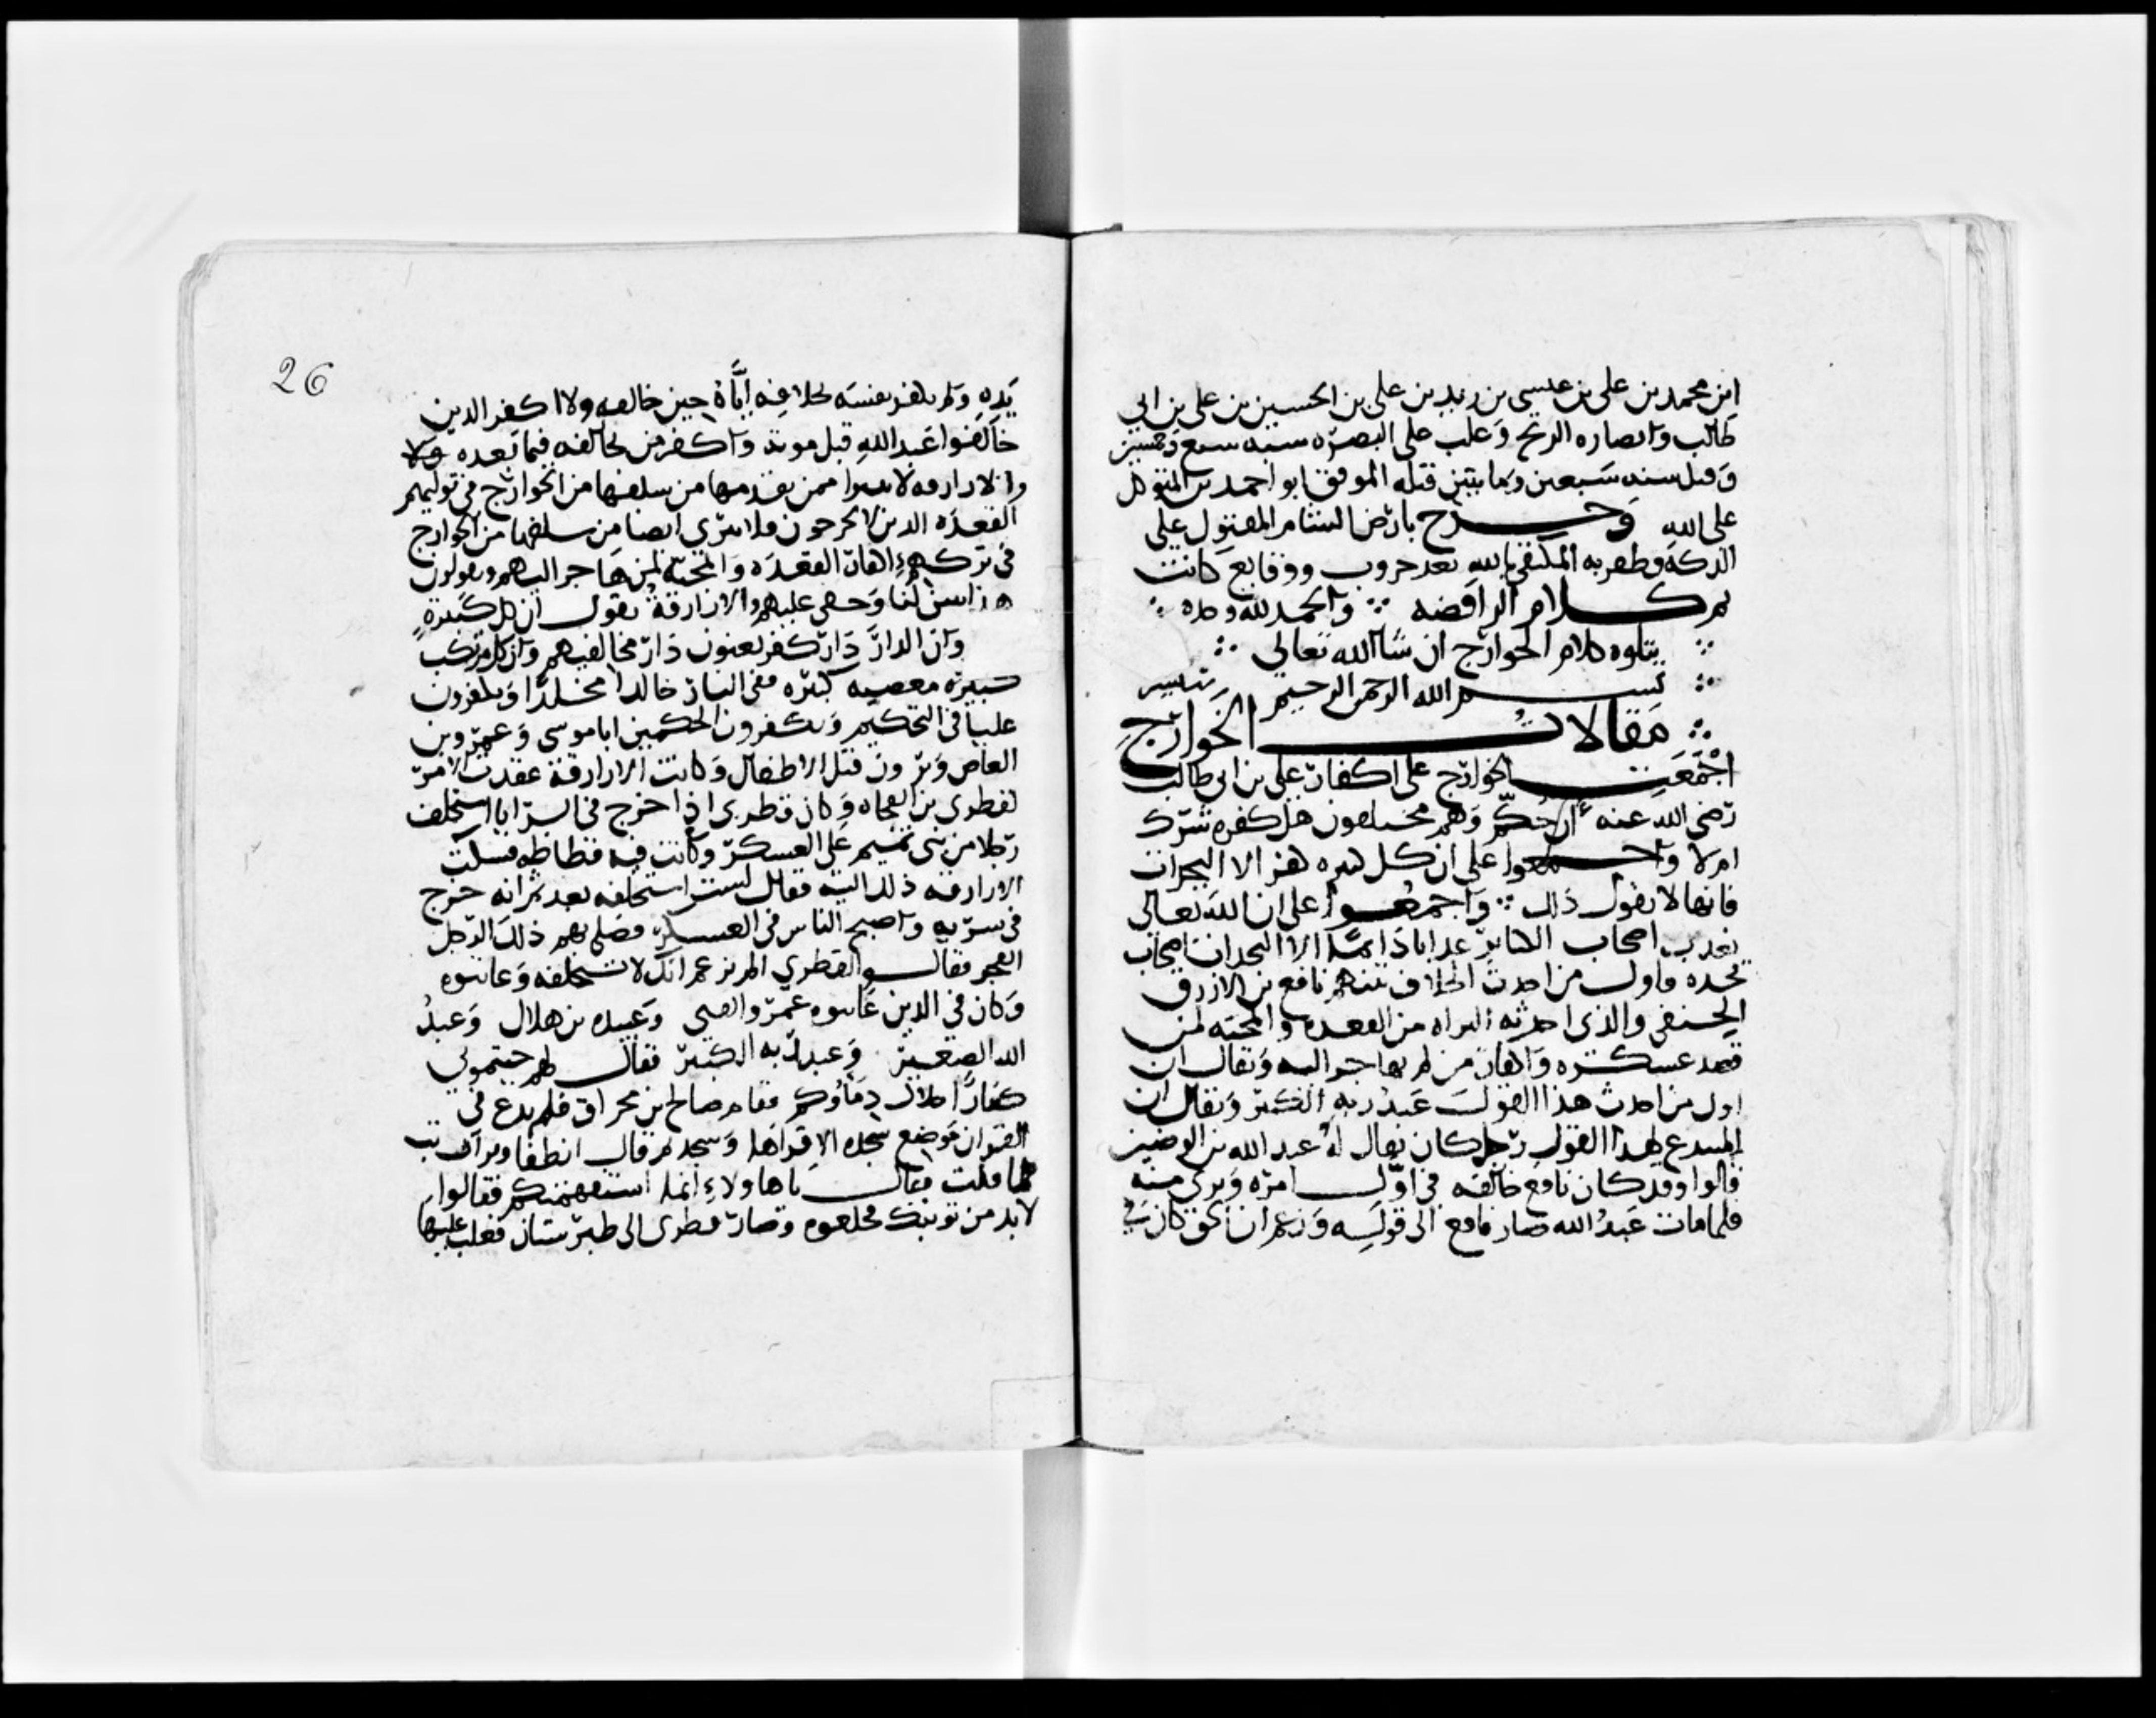 ابن محمد بن على بن عيسى بن زيد بن على بن الحسين بن على بن ابي
طالب وانصاره الزنج وغلب على البصره سنه سبع وخمسين
وقتل سنه سبعين ومايتين قتله الموفق ابو احمد بن المتوكل
على الله وخرج بارض الشام المقتول على
الدكة وظفر به المكتفي بالله بعد حروب ووقايع كانت
تم كلام الرافضه ∴ والحمد لله وحده ∴
∴ يتلوه كلام الخوارج ان شا الله تعالي ∴
∴ بسم الله الرحمن الرحيم
∴ مقالات الخوارج
اجمعت الخوارج على اكفار على بن ابي طالب
رضى الله عنه ان حكم وهم مختلفون هل كفره شرك
ام لا واجمعوا على ان كل كبيره كفر الا النجدات
فانها لا تقول ذلك ∴ واجمعوا على ان الله تعالى
يعذب اصحاب الكبائر عذابا دائما الا النجدات اصحاب
نجده فاول من احدث الخلاف بينهم نافع بن الازرق
الحنفي والذى احدثه البراه من القعده والمحنه لمن
قصد عسكره واكفار من لم يهاجر اليه ويقال ان
اول من احدث هذا القول عبد ربه الكبير ويقال ان
المبتدع لهذا القول رجل كان يقال له عبد الله بن الوضين
قالوا وقد كان نافع خالفه في اول امره وبرئ منه
فلما مات عبد الله صار نافع الى قوله وزعم ان الحق كان في
26
يده ولم يكفر نفسه بخلافه اياه حين خالفه ولا اكفر الذين
خالفوا عبد الله قبل موته واكفر من يخالفه فيما بعده
والازارقه لا تتبرا ممن تقدمها من سلفها من الخوارج في توليهم
القعده الذين لا يخرجون فلا تتبرى ايضا من سلفها من الخوارج
في تركهم اكفار القعده والمحنه لمن هاجر اليهم ويقولون
هذا تبين لنا وخفي عليهم والازارقة تقول ان كل كبيرة
وان الدار دار كفر يعنون دار مخالفيهم وان كل مرتكب
معصيه كبيره ففى النار خالدا مخلدا ويكفرون
عليا في التحكيم ويكفرون الحكمين ابا موسى وعمرو بن
العاص ويرون قتل الاطفال وكانت الازارقة عقدت الامر
لقطري بن الفجاه وكان قطرى اذا خرج في السرايا استخلف
رجلا من بنى تميم على العسكر وكانت فيه فظاظه فشكت
الازارقه ذلك اليه فقال لست استخلفه بعد ثم انه خرج
في سريه واصبح الناس في العسكر فصلى بهم ذلك الرجل
الفجر فقالوا لقطري الم تزعم انك لا تستخلفه وعاتبوه
وكان في الذين عاتبوه عمرو القنى وعبيده بن هلال وعبد
الله الصغير وعبد ربه الكبير فقال لهم جيتموني
كفارا حلال دماؤكم فقام صالح بن مخراق فلم يدع في
القران موضع سجده الا قراها وسجد ثم قال اكفارا ترانا تب
مما قلت فقال يا هاولاء انما استفهمتكم فقالوا
لا بد من توبتك فخلعوه وصار قطرى الى طبرستان فغلب عليها